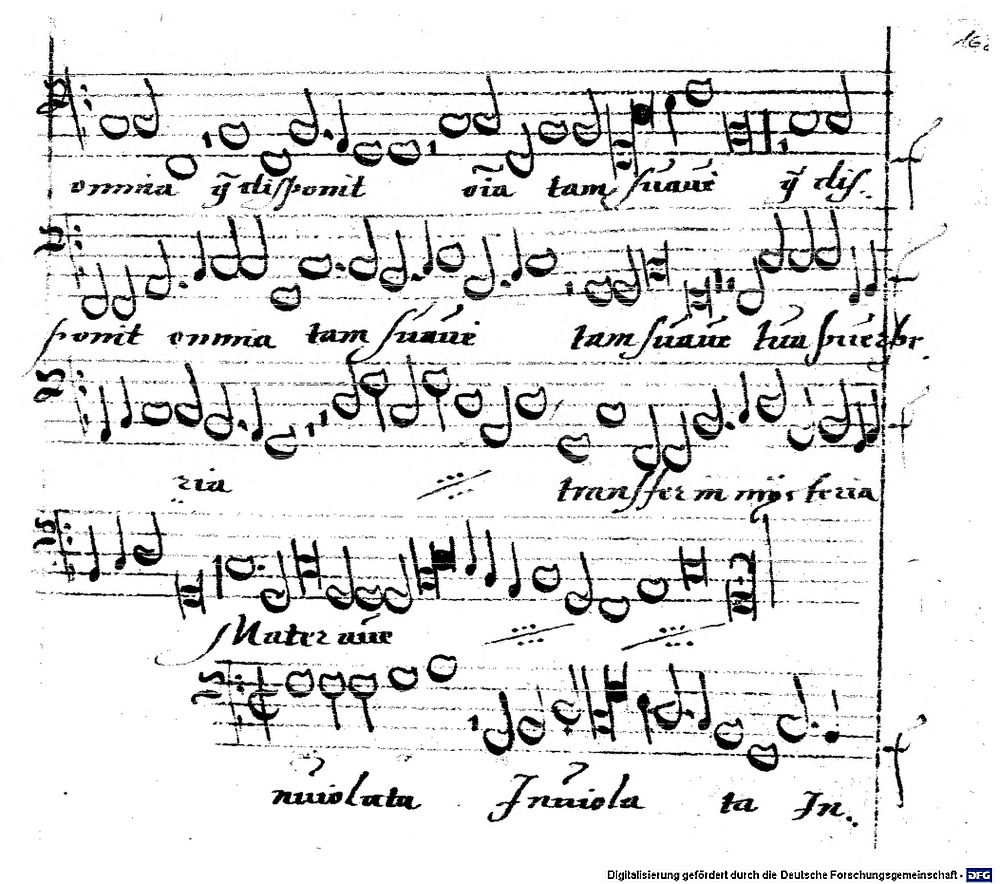 omnia q̃ disponit oĩa tam suaue q̃ dis.
ponit omnia tam suaue tam suaue tua puerbe.
ria transfer in mysteria
Mater aue
nuiolata Inuiola ta In.
Digitalisierung gefördert durch die Deutsche Forschungsgemeinschaft - DFG